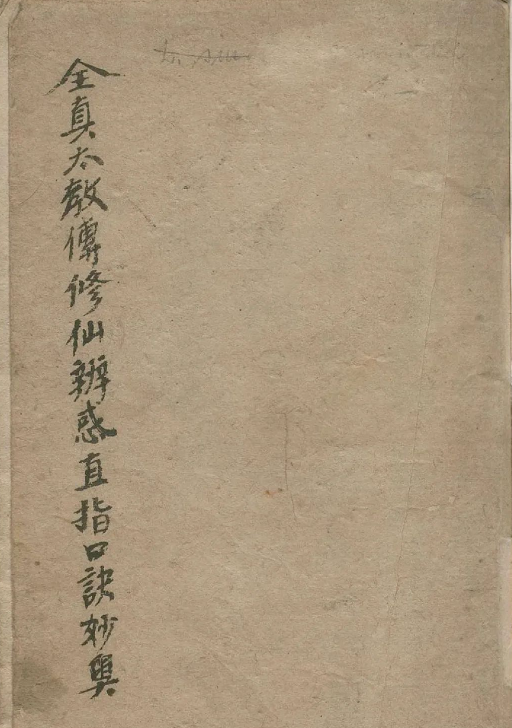 全真太教傳修仙辨惑直指口訣妙奧